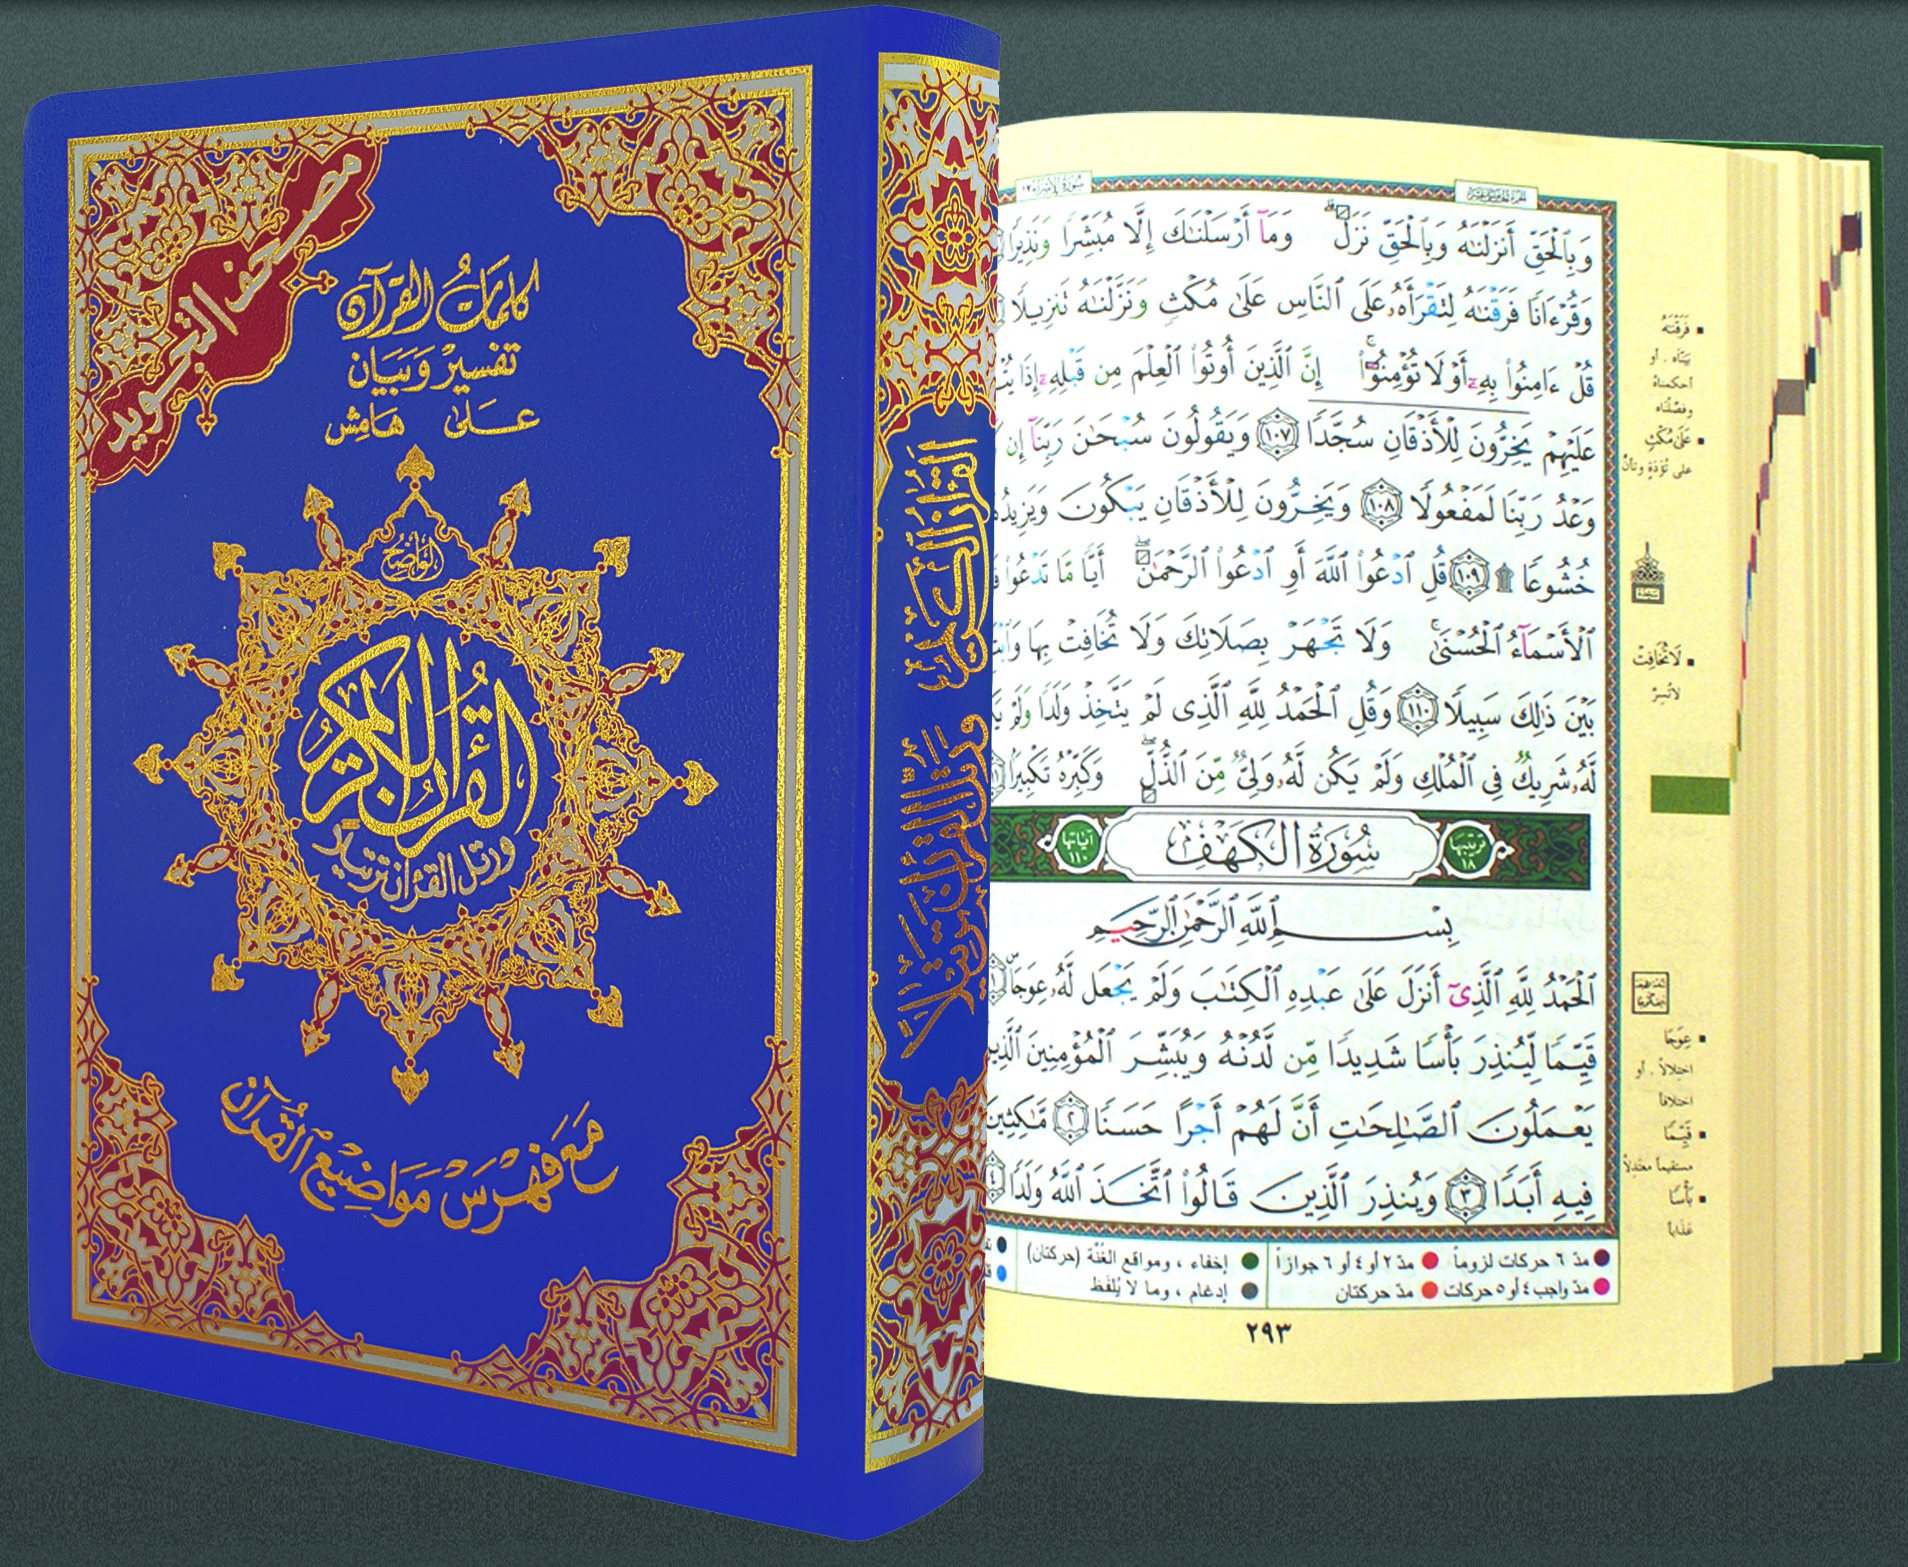 مصحف التجويد
كلمات القرآن
تفسير وبيان
على هامش
الواضح
القرآن الكريم
ورتل القرآن ترتيلا
مع فهرس مواضيع القرآن
القرآن الكريم ورتل القرآن ترتيلا
سُورَةُ الإِسْرَاء ١٧
وَبِٱلْحَقِّ أَنزَلْنَٰهُ وَبِٱلْحَقِّ نَزَلَ وَمَآ أَرْسَلْنَٰكَ إِلَّا مُبَشِّرًا وَنَذِيرًا
وَقُرْءَانًا فَرَقْنَٰهُ لِتَقْرَأَهُۥ عَلَى ٱلنَّاسِ عَلَىٰ مُكْثٍ وَنَزَّلْنَٰهُ تَنزِيلًا
قُلْ ءَامِنُوا۟ بِهِۦٓ أَوْ لَا تُؤْمِنُوٓا۟ إِنَّ ٱلَّذِينَ أُوتُوا۟ ٱلْعِلْمَ مِن قَبْلِهِۦٓ إِذَا
عَلَيْهِمْ يَخِرُّونَ لِلْأَذْقَانِ سُجَّدًا ١٠٧ وَيَقُولُونَ سُبْحَٰنَ رَبِّنَآ إِن
وَعْدُ رَبِّنَا لَمَفْعُولًا ١٠٨ وَيَخِرُّونَ لِلْأَذْقَانِ يَبْكُونَ وَيَزِيدُهُ
خُشُوعًا ۩ ١٠٩ قُلِ ٱدْعُوا۟ ٱللَّهَ أَوِ ٱدْعُوا۟ ٱلرَّحْمَٰنَ أَيًّا مَّا تَدْعُوا۟
ٱلْأَسْمَآءُ ٱلْحُسْنَىٰ وَلَا تَجْهَرْ بِصَلَاتِكَ وَلَا تُخَافِتْ بِهَا
بَيْنَ ذَٰلِكَ سَبِيلًا ١١٠ وَقُلِ ٱلْحَمْدُ لِلَّهِ ٱلَّذِى لَمْ يَتَّخِذْ وَلَدًا وَلَمْ
لَّهُۥ شَرِيكٌ فِى ٱلْمُلْكِ وَلَمْ يَكُن لَّهُۥ وَلِىٌّ مِّنَ ٱلذُّلِّ وَكَبِّرْهُ تَكْبِيرًا
ترتيبها ١٨ سُورَةُ الكَهْفِ آياتها ١١٠
بِسْمِ ٱللَّهِ ٱلرَّحْمَٰنِ ٱلرَّحِيمِ
ٱلْحَمْدُ لِلَّهِ ٱلَّذِىٓ أَنزَلَ عَلَىٰ عَبْدِهِ ٱلْكِتَٰبَ وَلَمْ يَجْعَل لَّهُۥ عِوَجَا ١
قَيِّمًا لِّيُنذِرَ بَأْسًا شَدِيدًا مِّن لَّدُنْهُ وَيُبَشِّرَ ٱلْمُؤْمِنِينَ ٱلَّذِينَ
يَعْمَلُونَ ٱلصَّٰلِحَٰتِ أَنَّ لَهُمْ أَجْرًا حَسَنًا ٢ مَّٰكِثِينَ
فِيهِ أَبَدًا ٣ وَيُنذِرَ ٱلَّذِينَ قَالُوا۟ ٱتَّخَذَ ٱللَّهُ وَلَدًا ٤
فَرَقْنَٰهُ
بيّنّاه . أو
أحكمناهُ
وفصّلناه
عَلَىٰ مُكْثٍ
على تُؤَدَةٍ وتأنٍّ
لَا تُخَافِتْ
لا تُسِرّ
عِوَجًا
اختلالاً . أو
اختلافاً
قَيِّمًا
مستقيماً معتدِلاً
بَأْسًا
عَذاباً
مدّ ٦ حركات لزوماً مدّ ٢ أو ٤ أو ٦ جوازاً إخفاء ، ومواقع الغُنَّة (حركتان)
مدّ واجب ٤ أو ٥ حركات مدّ حركتان إدغام ، وما لا يُلفَظ
٢٩٣